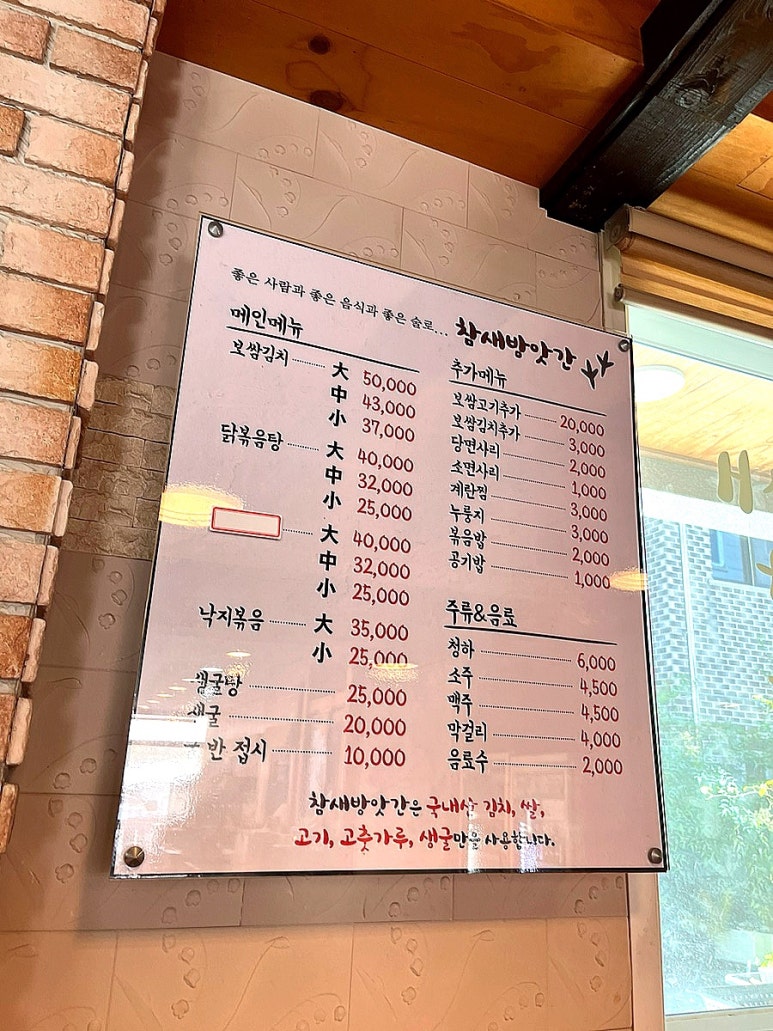 좋은 사람과 좋은 음식과 좋은 술로... 참새방앗간
메인메뉴
보쌈김치 大 50,000
中 43,000
小 37,000
닭볶음탕 大 40,000
中 32,000
小 25,000
大 40,000
中 32,000
小 25,000
낙지볶음 大 35,000
小 25,000
생굴탕 25,000
생굴 20,000
반 접시 10,000
추가메뉴
보쌈고기추가 20,000
보쌈김치추가 3,000
당면사리 2,000
소면사리 1,000
계란찜 3,000
누룽지 3,000
볶음밥 2,000
공기밥 1,000
주류&음료
청하 6,000
소주 4,500
맥주 4,500
막걸리 4,000
음료수 2,000
참새방앗간은 국내산 김치, 쌀,
고기, 고춧가루, 생굴만을 사용합니다.